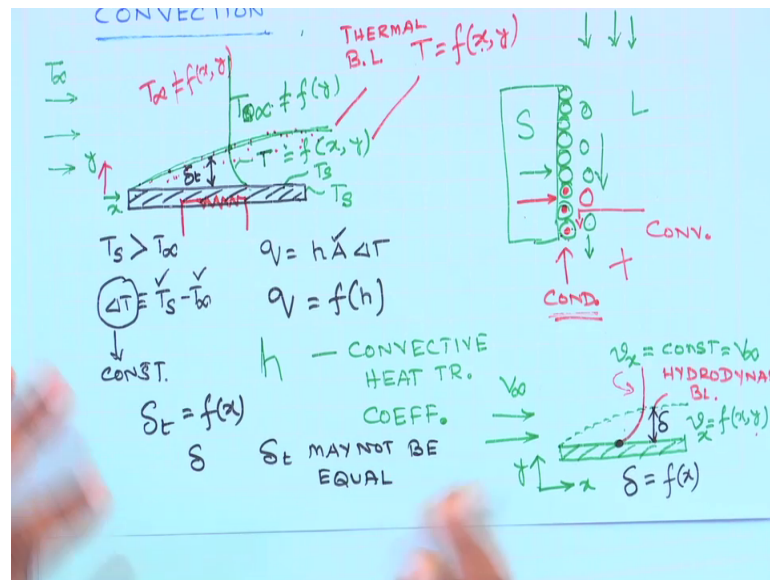 CONVECTION
THERMAL
B.L T = f(x,y)
T∞
T∞ ≠ f(x,y)
T∞ ≠ f(y)
T = f(x,y)
y
x
δt
Ts
Ts
S
L
CONV.
COND.
Ts > T∞
q = hA ΔT
ΔT = Ts - T∞
q = f(h)
CONST.
h — CONVECTIVE
HEAT TR.
COEFF.
δt = f(x)
δ δt MAY NOT BE
EQUAL
vx = CONST = V∞
HYDRODYNA
BL.
V∞
δ
vx = f(x,y)
y
x
δ = f(x)